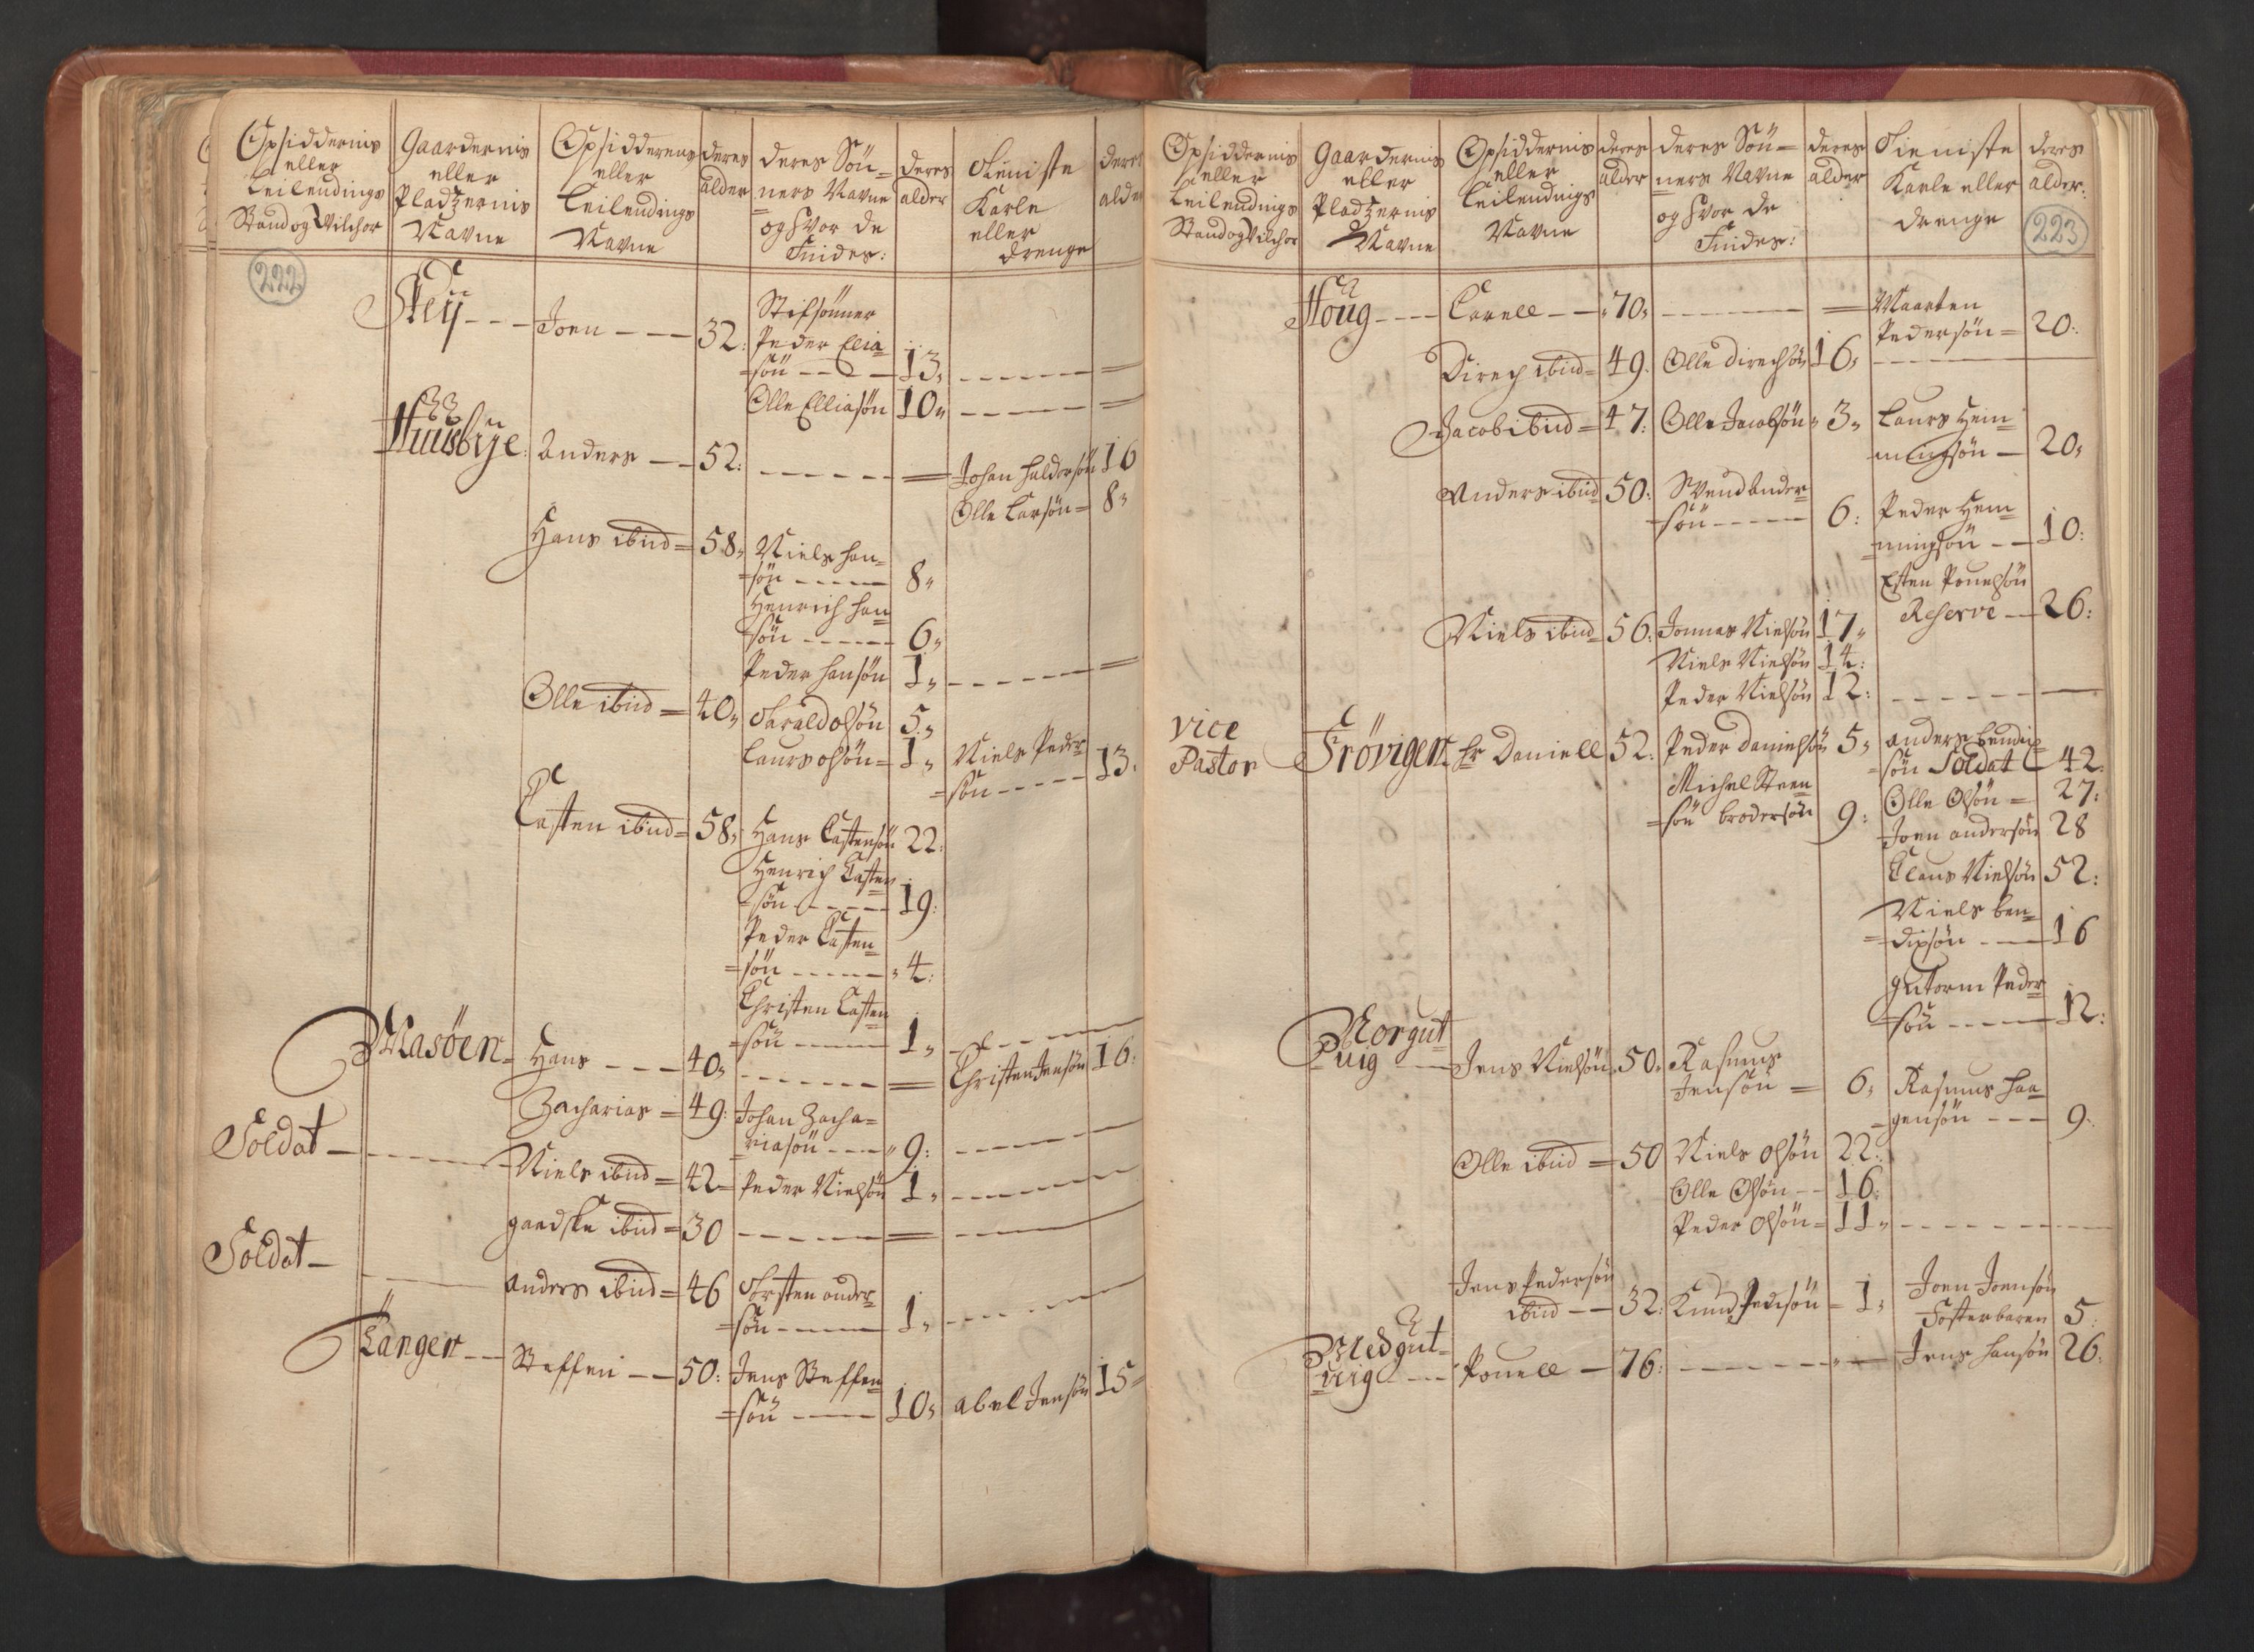 Opsiddernis
eller
Leilendings
Stand og Vilchor
Gaardernis
eller
Pladzernis
Navne
Opsidderens
eller
Leilendings
Navne
deres
alder
deres Søn=
=ners Navne
og hvor de
Findes:
deres
alder
Tieniste
Karle
eller
drenge
deres
alder
222
Støy - - - Joen - - - 32: Stifsønner
Peder Ellia=
=søn - - - 13,
Olle Elliasøn 10,
Huusbye: Anders - - 52: - - - - - = Johan Haldorsøn 16
Olle Larsøn = 8,
Hans ibid = 58, Niels Han=
=søn - - - - 8,
Henrich Han=
=søn - - - - 6,
Peder Hansøn 1,
Olle ibid = 40, Harald Olsøn 5,
Laurs Olsøn = 1, Niels Peder=
=søn - - - - 13.
Casten ibid = 58, Hans Castensøn 22:
Henrich Casten=
=søn - - - - 19:
Peder Casten=
=søn - - - - 4:
Christen Casten=
=søn - - - - 1,
Masöen - Hans - - - 40, - - - - - = Christen Jensøn 16:
Zacharias = 49: Johan Zacha=
=riasøn - - - 9:
Soldat - Niels ibid = 42 = Peder Nielsøn 1,
gaedske ibid = 30
Soldat - Anders ibid = 46 Torsten Ander=
=søn - - - - 1,
Langen - - Steffen - - 50: Jens Steffen=
=søn - - - 10, Abel Jensøn 15=
Opsiddernis
eller
Leilendings
Stand og Vilchor
Gaardernis
eller
Pladzernis
Navne
Opsiddernis
eller
Leilendings
Navne
deres
alder
deres Søn=
=ners Navne
og hvor de
Findes:
deres
alder
Tieniste
Karle eller
drenge
deres
alder:
223
Houg - - - Corneli - - 70, - - - - = Maarten
Pedersøn = 20:
Direch ibid = 49. Olle Direchsøn 16,
Jacob ibid = 47: Olle Jacobsøn 3, Laurs Hem=
=mingsøn - 20,
Anders ibid 50: Svend Ander=
=søn - - - - 6: Peder Hem=
=mingsøn - - 10:
Esten Pouelsøn
Niels ibid = 56: Jonnas Nielsøn 17, Reserve - 26:
Niels Nielsøn 14:
Peder Nielsøn 12:
vice
Pastor Frøvigen Hr Daniell 52: Peder Danielsøn 5, Anders Bendix=
=søn Soldat 42:
Michel Steen=
=søn brodersøn 9: Olle Olsøn = 27:
Joen Andersøn 28
Claus Nielsøn 52:
Niels Ben=
=dixsøn - - 16
Gutorm Peder=
=søn - - - - 12:
Norgut=
=uig - - Jens Nielsøn 50, Rasmus
Jensøn = 6, Rasmus Haa=
=gensøn - - - 9:
Olle ibid = 50 Niels Olsøn 22:
Olle Olsøn - - 16:
Peder Olsøn = 11,
Jens Pedersøn
ibid - - 32: Knud Jensøn = 1, Joen Joensøn
Fosterbaren 5:
Medgut=
=uig - - - Pouell - 76: - - - - Jens Hansøn 26: